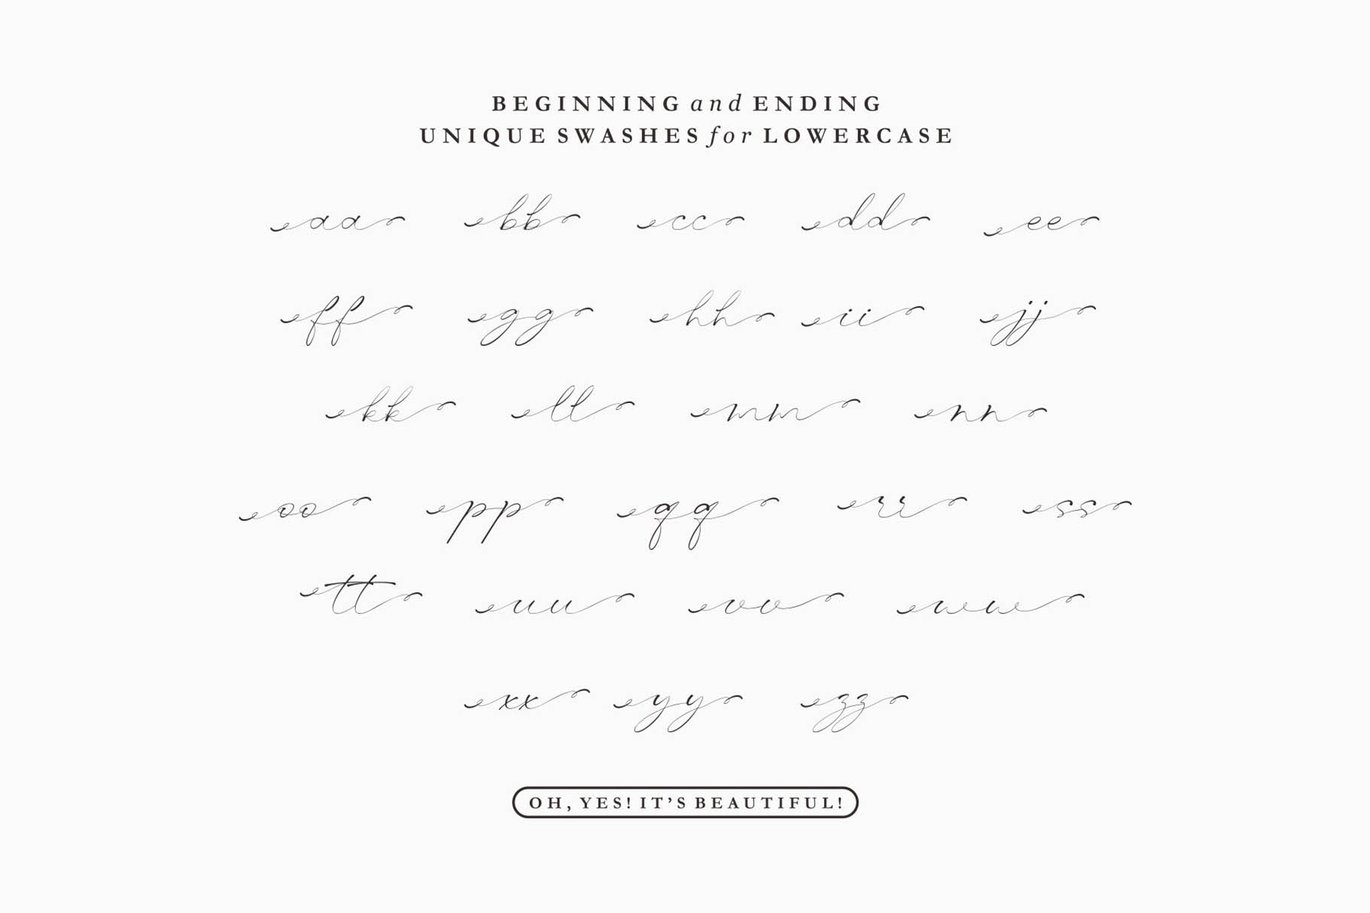 BEGINNING and ENDING
UNIQUE SWASHES for LOWERCASE
aa bb cc dd ee
ff gg hh ii jj
kk ll mm nn
oo pp qq rr ss
tt uu vv ww
xx yy zz
OH, YES! IT'S BEAUTIFUL!